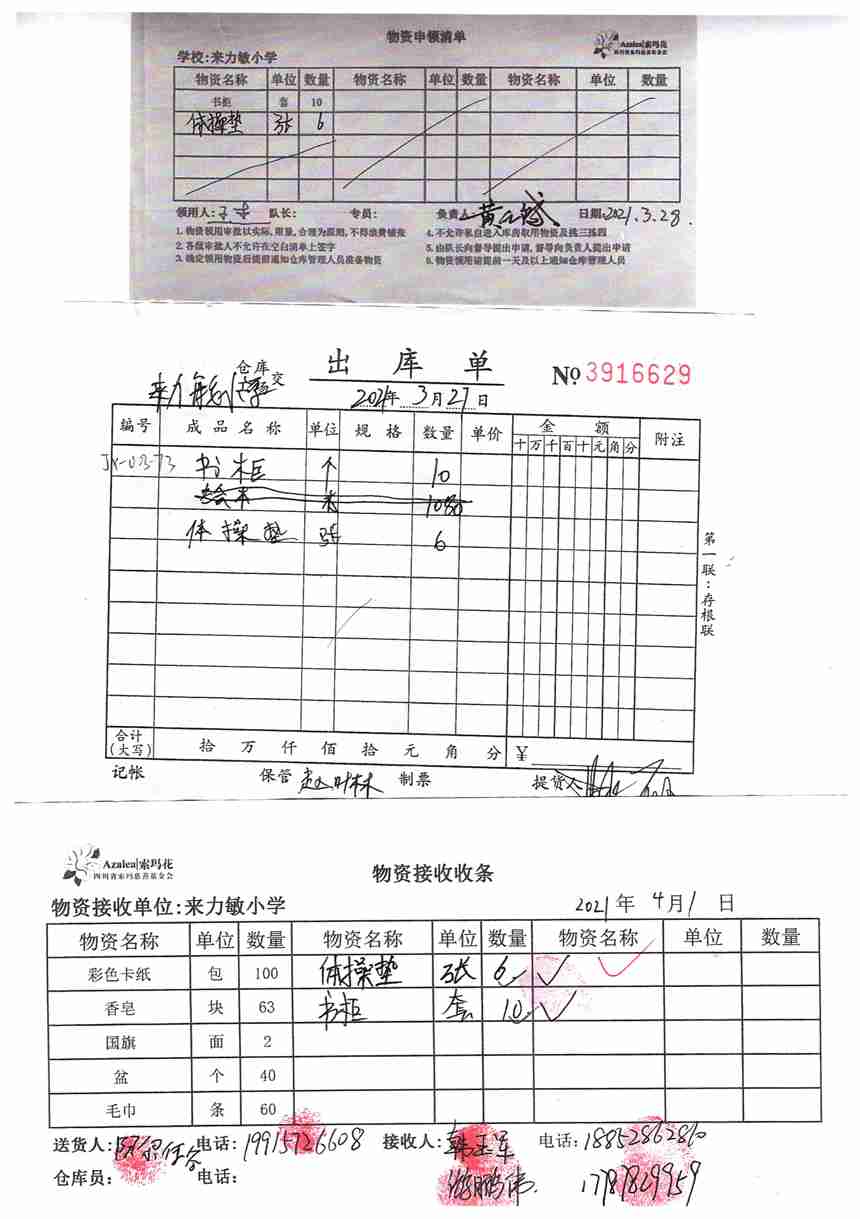 物资申领清单
Azalea|索玛花
四川省索玛慈善基金会
学校:来力敏小学
物资名称 单位 数量 物资名称 单位 数量 物资名称 单位 数量
书柜 套 10
体操垫 张 6
领用人: 队长: 专员: 负责人 黄 日期:2021.3.28.
1.物资领用审批以实际,限量,合理为原则,不得浪费铺张 4.不允许私自进入库房取用物资及挑三拣四
2.各级审批人不允许在空白清单上签字 5.由队长向督导提出申请,督导向负责人提出申请
3.确定领用物资后提前通知仓库管理人员准备物资 6.物资领用请提前一天及以上通知仓库管理人员
出库单
来力敏小学 仓库 交
№ 3916629
2021年 3月27日
编号 成品名称 单位 规格 数量 单价 金额 附注
十万千百十元角分
JY-03-73 书柜 个 10
绘本 本
体操垫 张 6
第一联:存根联
合计(大写) 拾 万 仟 佰 拾 元 角 分 ¥
记帐 保管 制票 提货人
Azalea|索玛花
四川省索玛慈善基金会
物资接收收条
物资接收单位:来力敏小学 2021年 4月1日
物资名称 单位 数量 物资名称 单位 数量 物资名称 单位 数量
彩色卡纸 包 100 体操垫 张 6
香皂 块 63 书柜 套 10
国旗 面 2
盆 个 40
毛巾 条 60
送货人: 电话:19915726608 接收人:韩玉军 电话:18852862860
仓库员: 电话: 游鹏伟. 17787829959